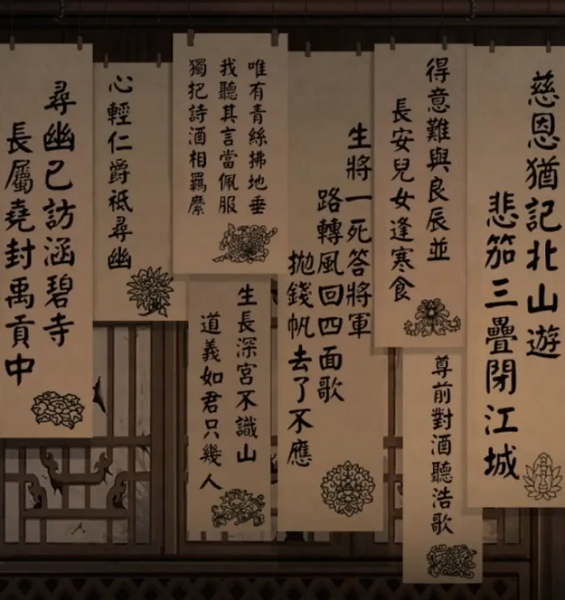 慈恩猶記北山遊
悲笳三疊閉江城
得意難與良辰並
長安兒女逢寒食
尊前對酒聽浩歌
生將一死答將軍
路轉風回四面歌
拋錢帆去了不應
唯有青絲拂地垂
我聽其言當佩服
獨把詩酒相羈縻
生長深宮不識山
道義如君只幾人
心輕仁爵祗尋幽
尋幽已訪涵碧寺
長屬堯封禹貢中